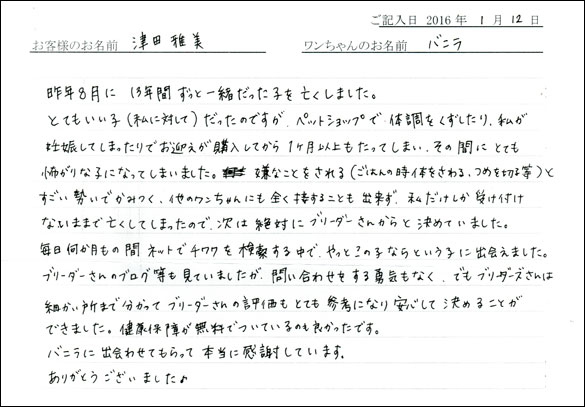 ご記入日 2016 年 1 月 12 日
お客様のお名前 津田 雅美 ワンちゃんのお名前 バニラ
昨年8月に 13年間 ずっと一緒だった子を亡くしました。
とてもいい子(私に対して)だったのですが、ペットショップで 体調をくずしたり、私が
妊娠してしまったりでお迎えが購入してから 1ヶ月以上もたってしまい、その間にとても
怖がりな子になってしまいました。 嫌なことをされる(ごはんの時体をさわる、つめを切る等)と
すごい勢いでかみつく、他のワンちゃんにも全く接することも出来ず、私だけしか受け付け
ないままで亡くしてしまったので、次は絶対にブリーダーさんからと決めていました。
毎日何か月もの間 ネットでチワワを検索する中で、やっとこの子ならという子に出会えました。
ブリーダーさんのブログ等も見ていましたが、問い合わせをする勇気もなく、でもブリーダーズさんは
細かい所まで分かって ブリーダーさんの評価もとても参考になり 安心して決めることが
できました。健康保障が無料でついているのも良かったです。
バニラに出会わせてもらって本当に感謝しています。
ありがとうございました♪